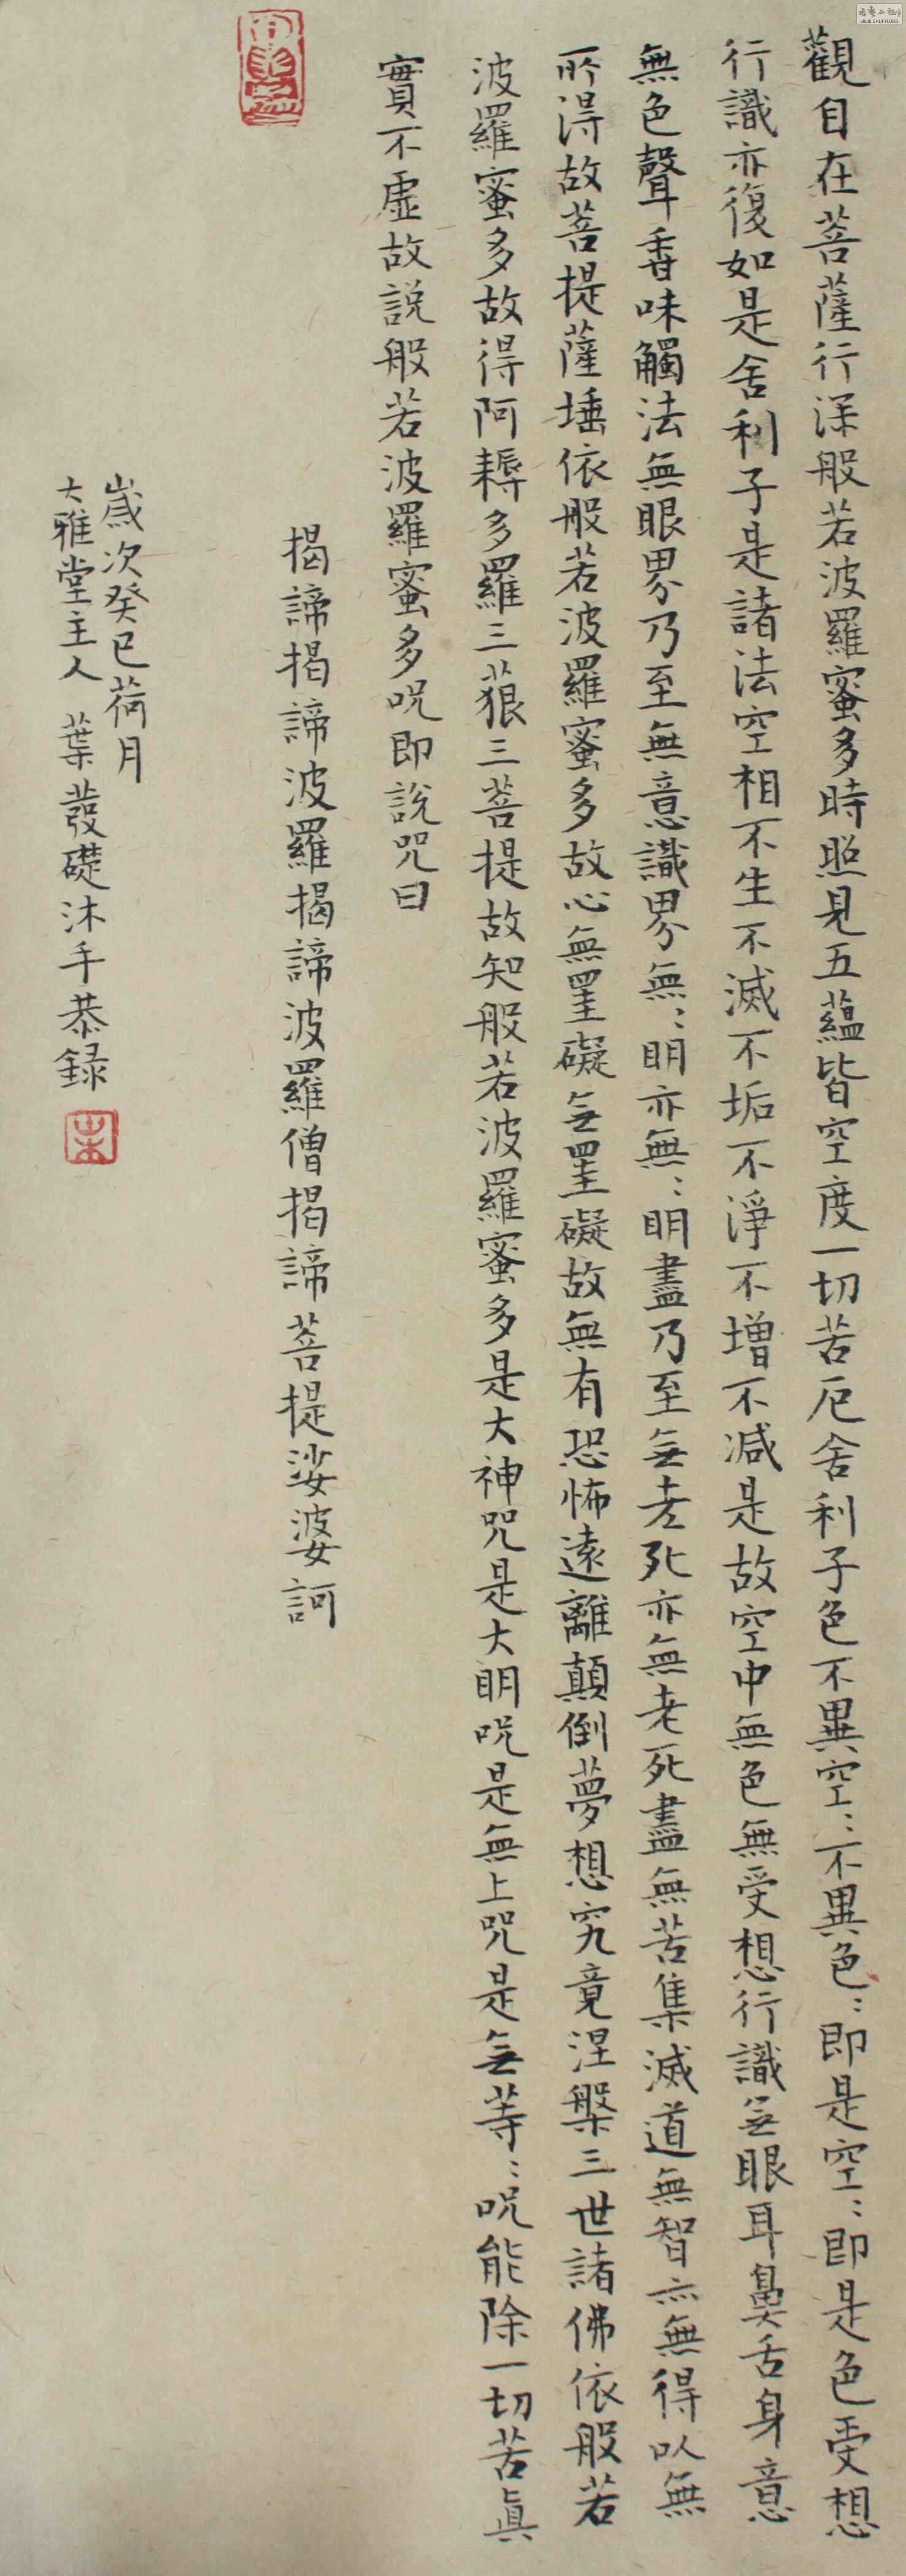 觀自在菩薩行深般若波羅蜜多時照見五蘊皆空度一切苦厄舍利子色不異空〻不異色〻即是空〻即是色受想
行識亦復如是舍利子是諸法空相不生不滅不垢不淨不增不減是故空中無色無受想行識无眼耳鼻舌身意
無色聲香味觸法無眼界乃至無意識界無〻明亦無〻明盡乃至无老死亦無老死盡無苦集滅道無智亦無得以無
所得故菩提薩埵依般若波羅蜜多故心無罣礙无罣礙故無有恐怖遠離顛倒夢想究竟涅槃三世諸佛依般若
波羅蜜多故得阿耨多羅三藐三菩提故知般若波羅蜜多是大神咒是大明咒是無上咒是无等〻咒能除一切苦真
實不虛故說般若波羅蜜多咒即說咒曰
揭諦揭諦波羅揭諦波羅僧揭諦菩提娑婆訶
歲次癸巳荷月
大雅堂主人 葉發礎沐手恭錄